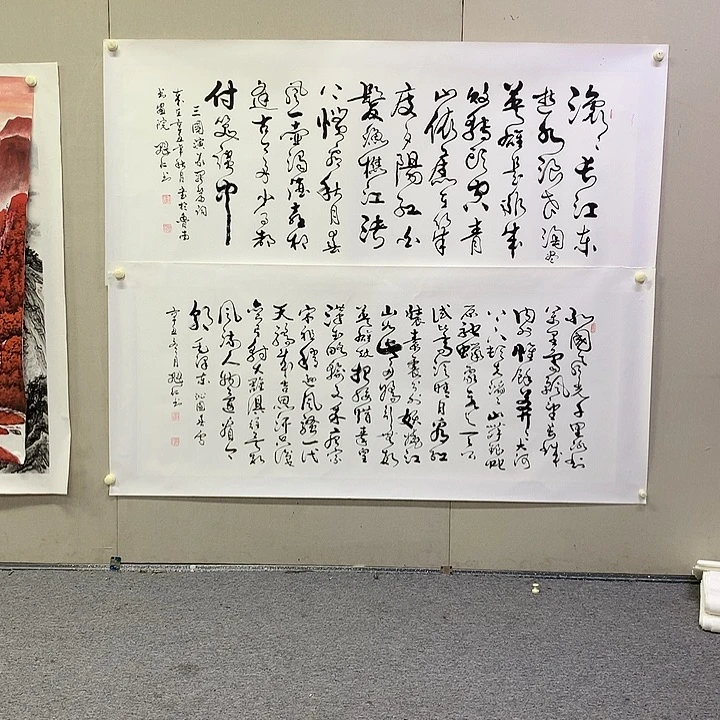 滚滚长江东
逝水浪花淘尽
英雄是非成
败转头空青
山依旧在几
度夕陽红白
髮渔樵江渚
上惯看秋月春
风一壶浊酒喜相
逢古今多少事都
付笑谈中
三國演义开篇词
岁在辛丑年秋月书於鲁南
书画院
北國风光千里冰封
万里雪飘望长城
内外惟餘莽莽大河
上下顿失滔滔山舞银蛇
原驰蜡象欲与天公
试比高须晴日看红
装素裹分外妖娆江
山如此多娇引无数
英雄竞折腰惜秦皇
汉武略输文采唐宗
宋祖稍逊风骚一代
天骄成吉思汗只识
弯弓射大雕俱往矣数
风流人物还看今
朝 毛泽东 沁园春雪
辛丑冬月